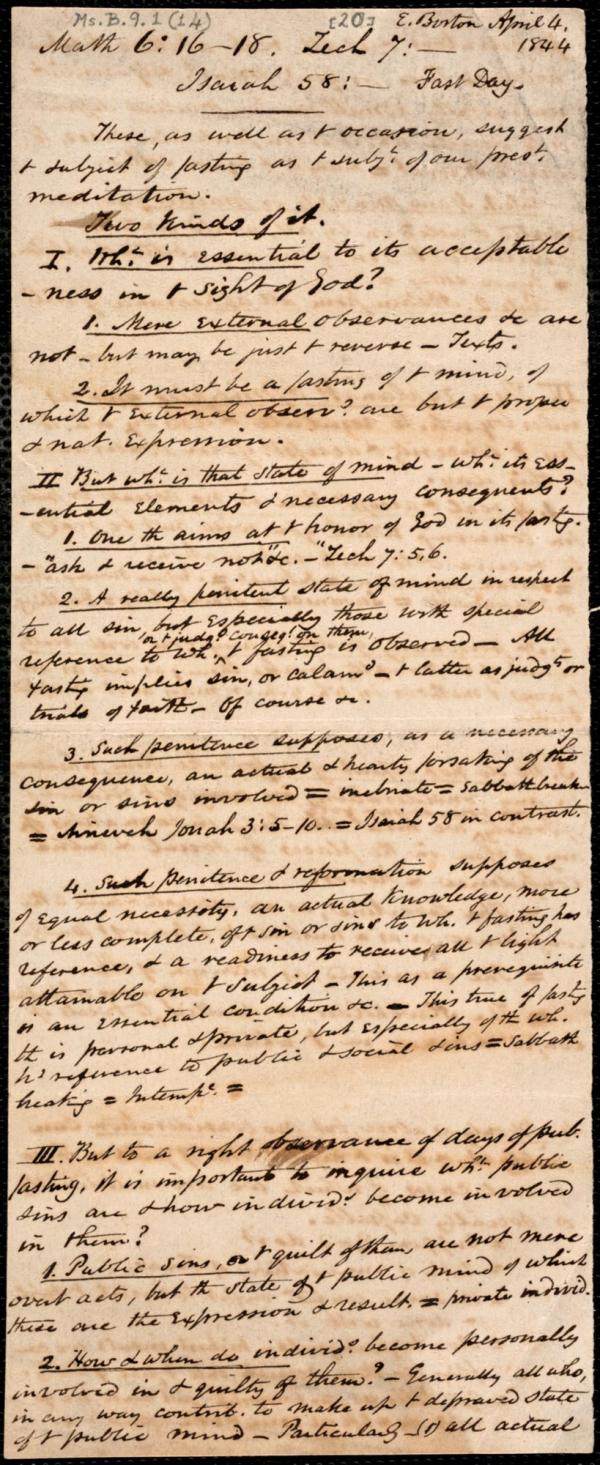 Ms.B.9.1(14) [20] E. Boston April 4,
Math 6: 16–18. Zech 7:— 1844
Isaiah 58:— Fast Day.
These, as well as t occasion, suggest
t subject of fasting as t subjt. of our prest.
meditation.
Two Kinds of it.
I. Wht. is essential to its acceptable
-ness in t sight of God?
1. Mere external observances &c are
not – but may be just t reverse – Texts.
2. It must be a fasting of t mind, of
which t external observs. are but t proper
& nat. expression.
II But wht. is that state of mind – wht. its ess-
-ential elements & necessary consequents?
1. One th aims at t honor of God in its fastg.
– "ask & receive not" &c. – "Zech 7: 5,6.
2. A really penitent state of mind in respect
to all sin, but especially those with special
or t judgts. conseqt. on them,
reference to wh. ^ t fasting is observed – All
fastg implies sin, or calams – t latter as judgts or
trials of faith – Of course &c.
3. Such penitence supposes, as a necessary
consequence, an actual & hearty forsaking of the
sin or sins involved = inebriate = Sabbath breaker
= Nineveh Jonah 3: 5–10. = Isaiah 58 in contrast.
4. Such penitence & reformation supposes
of equal necessity, an actual knowledge, more
or less complete, of t sin or sins to wh. t fasting has
reference, & a readiness to receive all t light
attainable on t subject – This as a prerequisite
is an essential condition &c. – This true of fastg
th is personal & private, but especially of th wh.
hs reference to public & social sins = Sabbath
breakg = Intempe. =
III. But to a right observance of days of pub.
fasting, it is important to inquire wht. public
sins are & how individs. become involved
in them?
1. Public sins, or t guilt of them are not mere
overt acts, but th state of t public mind of which
these are the expression & result. = private individ.
2. How & when do individs. become personally
involved in & guilty of them? – Generally all who,
in any way contrib. to make up t depraved state
of t public mind – Particularly – (1) all actual